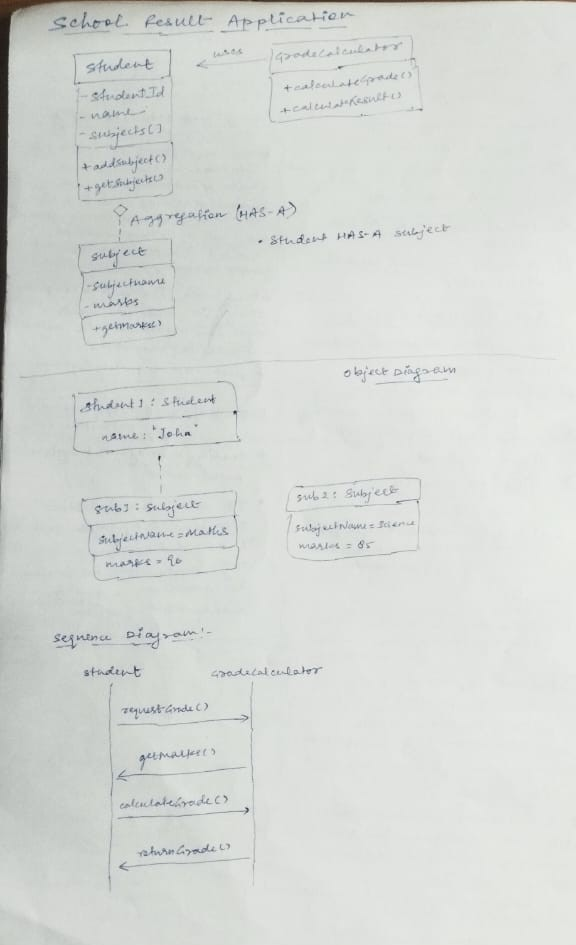 School Result Application
Student
uses
GradeCalculator
- StudentId
- name
- subjects[]
+ addSubject()
+ getSubjects()
+ calculateGrade()
+ calculateResult()
Aggregation (HAS-A)
• Student HAS-A subject
subject
- subjectname
- marks
+ getMarks()
Object Diagram
Student1 : Student
name : "John"
sub1 : subject
subjectName = Maths
marks = 90
sub2 : subject
subjectName = Science
marks = 85
Sequence Diagram :-
Student
GradeCalculator
requestGrade()
getMarks()
calculateGrade()
returnGrade()